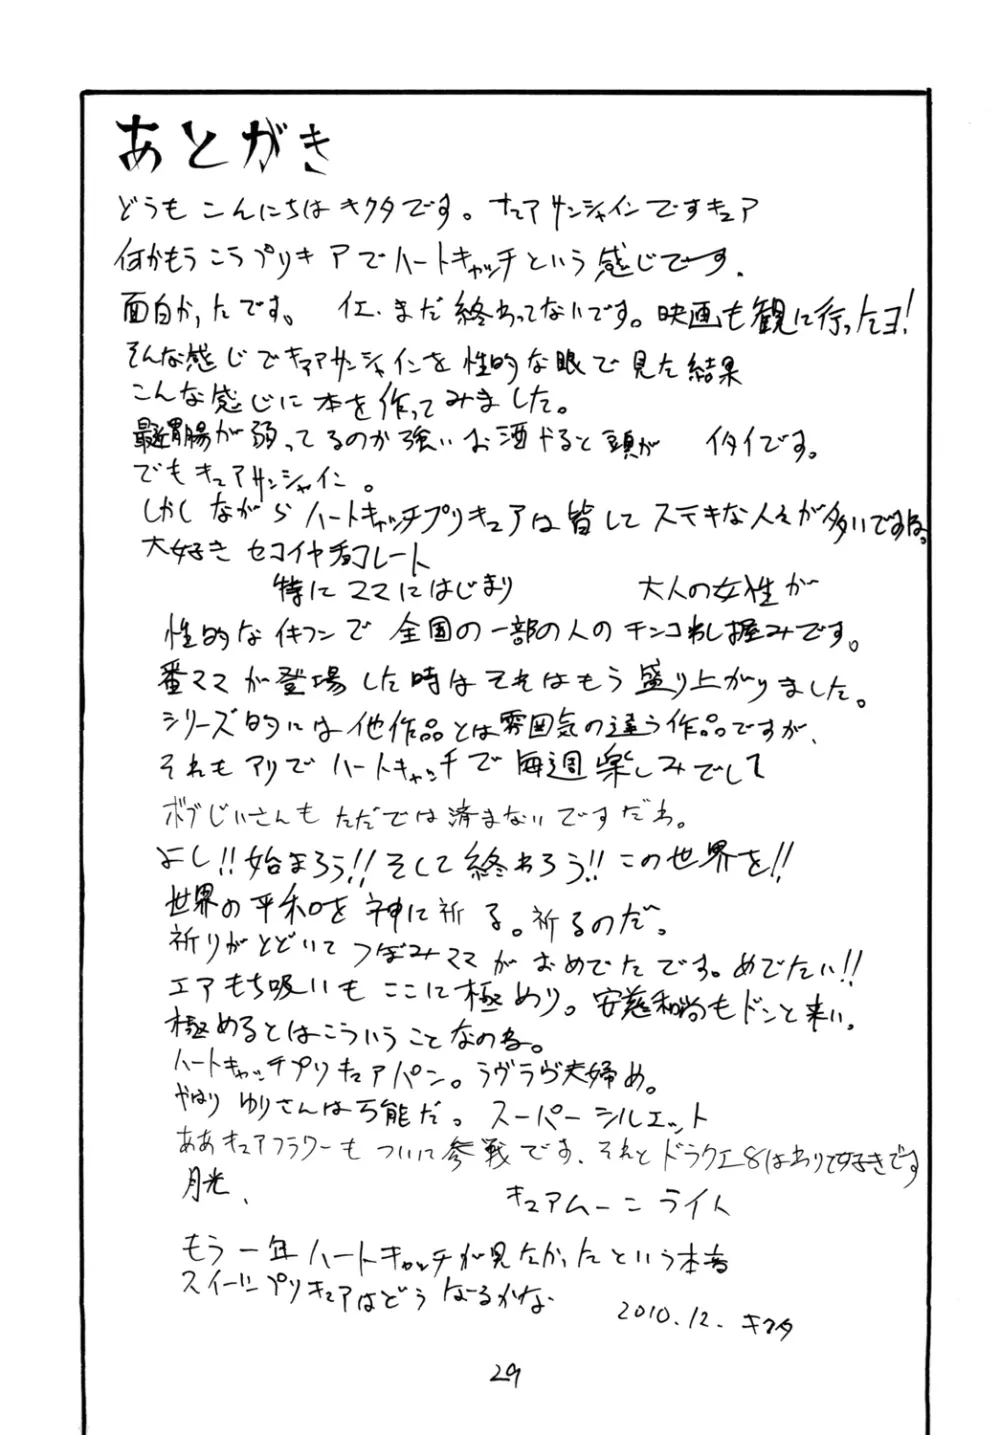 あとがき
どうも こんにちは キクタです。キュアサンシャインですキュア
何かもう こう プリキュアで ハートキャッチ という 感じです.
面白かったです。 イエ、まだ 終わってないです。映画も観に行ったヨ!
そんな感じで キュアサンシャインを 性的な眼で 見た結果
こんな感じに 本を作ってみました。
最近胃腸が 弱ってるのか 強い お酒 やると 頭が イタイです。
でもキュアサンシャイン。
しかし ながら ハートキャッチプリキュアは 皆して ステキな人が 多いですね。
大好き セコイヤチョコレート
特に ママにはじまり 大人の女性が
性的な イキフンで 全国の 一部の人の チンコわし掴みです。
番ママが 登場した時は それはもう 盛り上がりました。
シリーズ的には 他作品とは雰囲気の違う作品ですが、
それも アリで ハートキャッチで 毎週 楽しみでして
ボブじいさんも ただでは済まないですだわ。
よし!!始まろう!!そして終わろう!!この世界を!!
世界の 平和を 神に祈る。祈るのだ。
祈りがとどいて つぼみママが おめでたです。めでたい!!
エアもち吸いも ここに極めり。安慈和尚もドンと来い.
極めるとはこういうことなのね。
ハートキャッチプリキュアパン。ラヴラヴ夫婦め。
やはり ゆりさんは万能だ。スーパーシルエット
ああ キュアフラワーも ついに 参戦です、それと ドラクエ8はわりと好きです
月光、 キュアムーンライト
もう一年 ハートキャッチが見たかったという本音
スイートプリキュアはどう なるかな
2010.12. キクタ
29